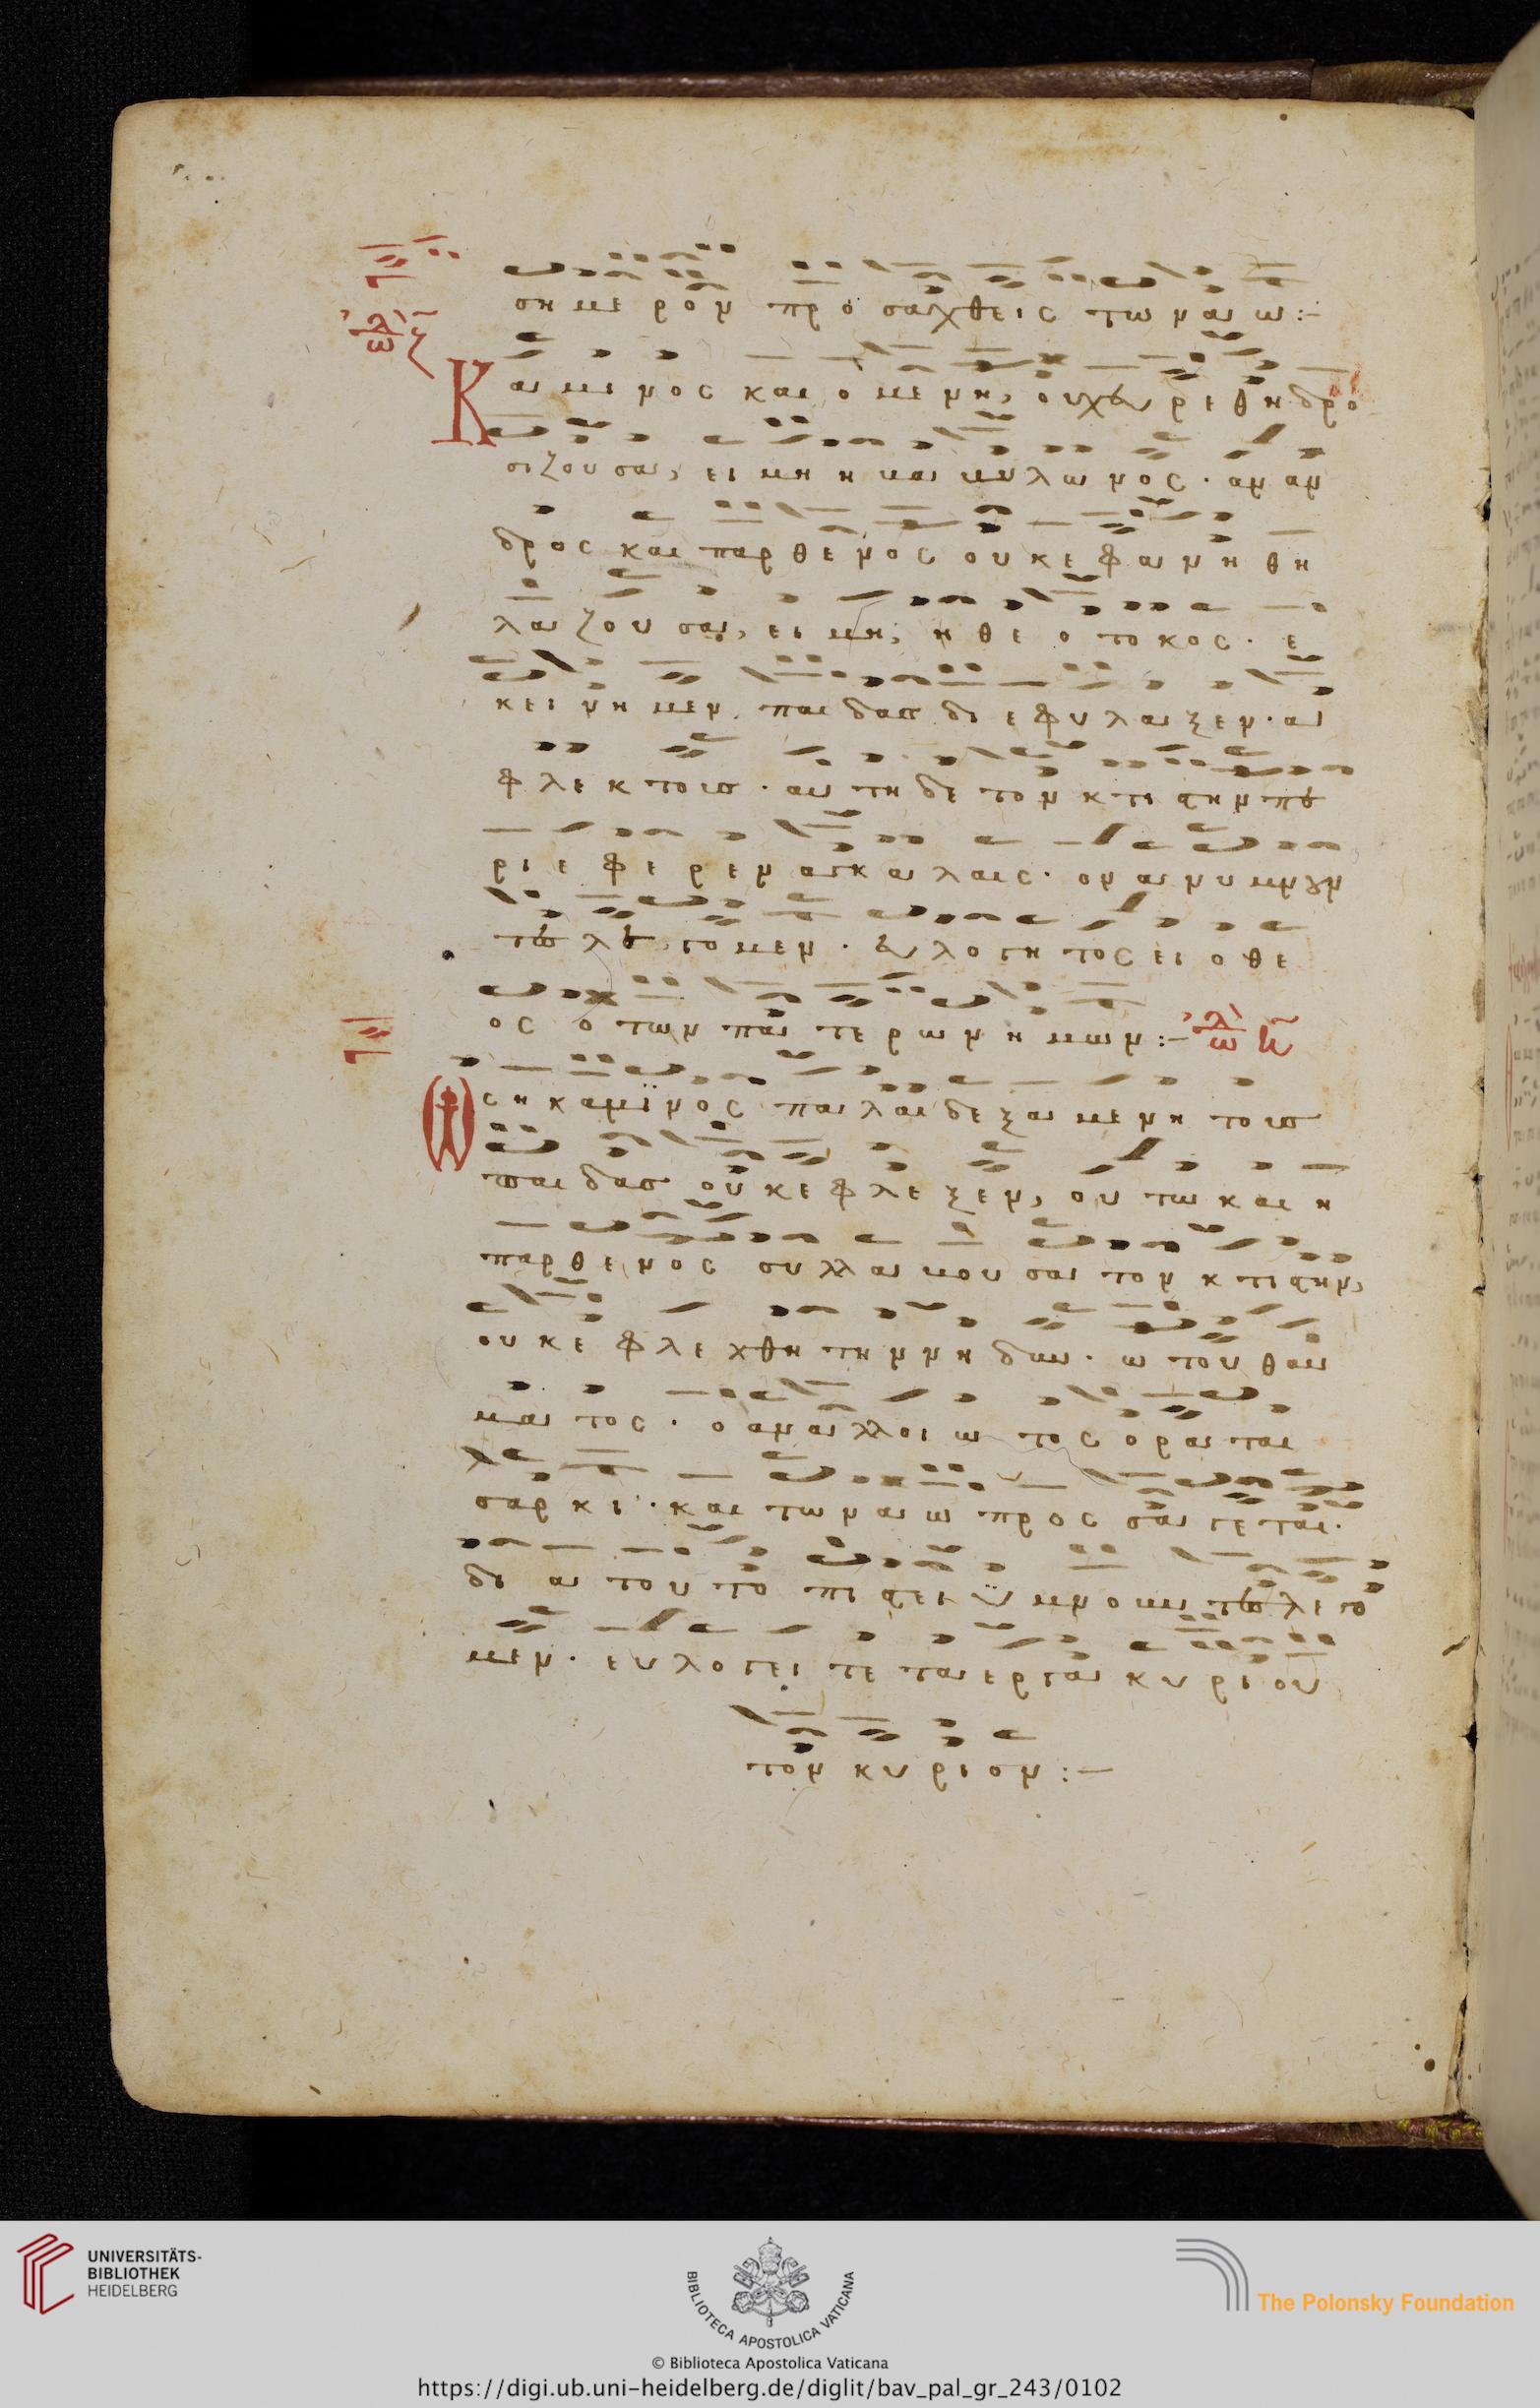 ση με ρον προ σαχθεις τω να ω :-
ᾠδ ζ
Κα μι νος και ο με νη, ουχ ευ ρε θη δρο
σιζου σα, ει μη η κα μου λω νος · αν αν
δρος και παρ θε νος ουκ ε φα νη θη
λα ζου σα, ει μη, η θε ο το κος · ε
κει νη μεν παι δας δι ε φυ λα ξεν · α
φλεκ τους · αυ τη δε τον κτι στην πυ
ρι ε φε ρεν αγ κα λαις · ον α νυ μνουν
τες λε γο μεν · ευ λο γη τος ει ο θε
ος ο των πα τε ρων η μων :- ᾠδ η
Ως η κα μι νος πα λαι δε ξα με νη τους
παι δας ουκ ε φλε ξεν, ου τω και η
παρ θε νος συλ λα βου σα τον κτι στην,
ουκ ε φλε χθη την νη δυν · ω του θαυ
μα τος · ο αν αλ λοι ω τος ορα ται
σαρ κι · και τω να ω προς α γε ται ·
δι α του το πι στει υ μνο υν τες λε γο
μεν · ευ λο γει τε τα ερ γα κυ ρι ου
τον κυ ρι ον :-
UNIVERSITÄTS-
BIBLIOTHEK
HEIDELBERG
BIBLIOTECA APOSTOLICA VATICANA
The Polonsky Foundation
© Biblioteca Apostolica Vaticana
https://digi.ub.uni-heidelberg.de/diglit/bav_pal_gr_243/0102